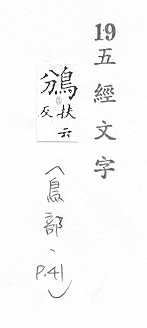 19 五經文字
鳻
扶云
反
(鳥部、P.41)